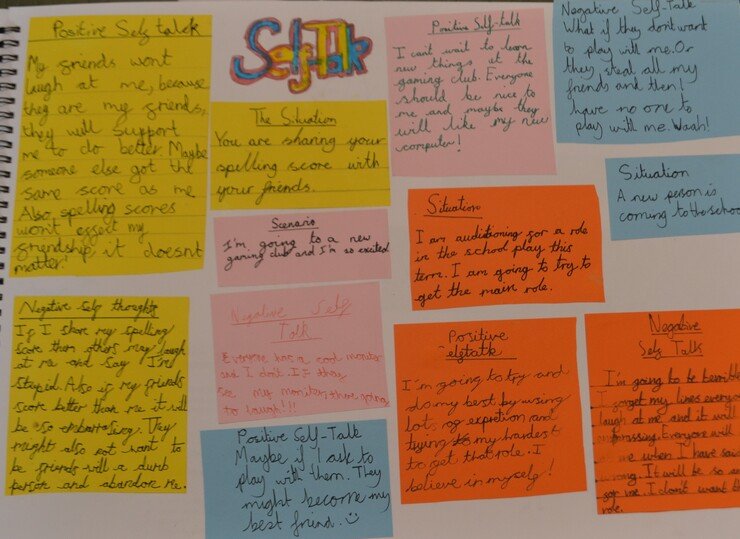 Positive Self talk
My friends wont
laugh at me, because
they are my friends,
they will support
me to do better. Maybe
someone else got the
same score as me
Also spelling scores
won't effect my
friendship, it doesnt
matter!
Self-Talk
The Situation
You are sharing your
spelling score with
your friends.
Negative Self thoughts
If I share my spelling
score then others may laugh
at me and say I'm
stupid. Also if my friends
score better than me it will
be so embarrasing. They
might also not want to
be friends will a dumb
person and abandore me.
Scenario
I'm going to a new
gaming club and I'm so excited
Positive Self-talk
I cant wait to learn
new things at the
gaming club. Everyone
should be nice to
me and maybe they
will like my new
computer!
Negative Self
Talk
Everyone has a cool monitor
and I don't. If they
see my monitor, there going
to laugh!!!
Situation
A new person is
coming to the school
Negative Self-Talk
What if they dont want
to play will me. Or
they steal all my
friends and then I
have no one to
play with me. Waah!
Positive Self-Talk
Maybe if I ask to
play with them. They
might become my
best friend.
Situation
I am auditioning for a role
in the school play this
term. I am going to try to
get the main role.
Positive
I'm going to try and
do my best by using
lots of expretion and
trying my hardest
to get that role. I
believe in myself!
Negative
Self Talk
I'm going to be terrible
I forget my lines everyone
laugh at me and it will
Everyone will
me when I have
It will be so
for me. I don't want
role.